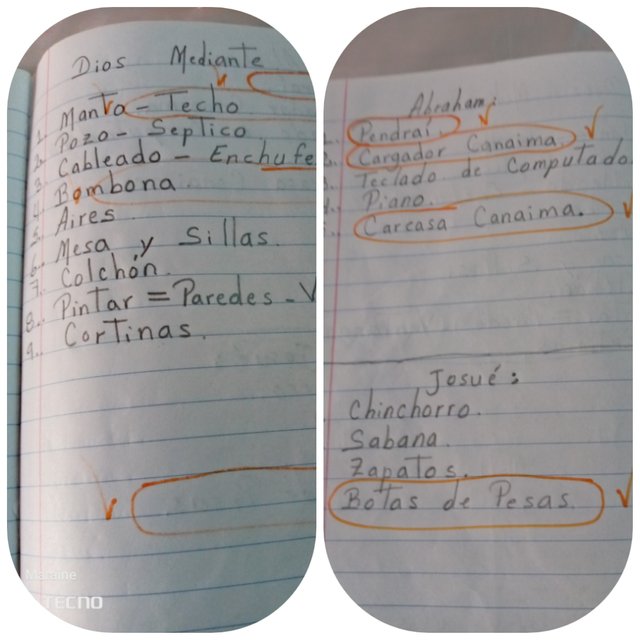 Dios Mediante
1. Manto - Techo
2. Pozo - Septico
3. Cableado - Enchufe
4. Bombona
5. Aires
6. Mesa y Sillas.
7. Colchón.
8. Pintar = Paredes - V
9. Cortinas.
Maraine
TECNO
Abraham:
1. Pendrai.
2. Cargador Canaima.
3. Teclado de Computado
4. Piano.
Carcasa Canaima.
Josué:
Chinchorro.
Sabana.
Zapatos.
Botas de Pesas